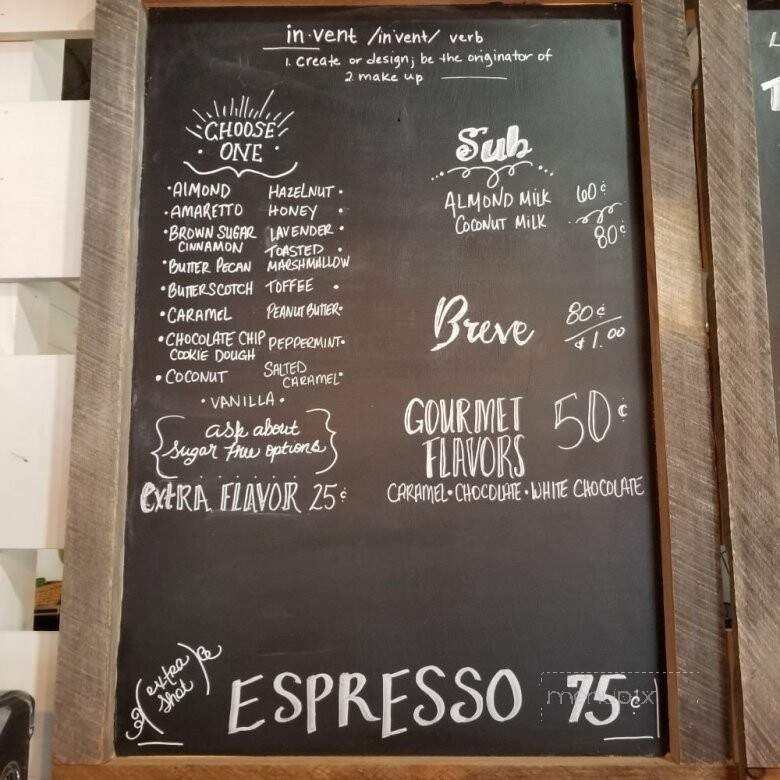 in·vent /in'vent/ verb
1. Create or design; be the originator of
2. make up
CHOOSE
· ONE ·
·ALMOND
·AMARETTO
·BROWN SUGAR
CINNAMON
·BUTTER PECAN
·BUTTERSCOTCH
·CARAMEL
·CHOCOLATE CHIP
COOKIE DOUGH
·COCONUT
HAZELNUT·
HONEY ·
LAVENDER·
TOASTED ·
MARSHMALLOW
TOFFEE ·
PEANUT BUTTER·
PEPPERMINT·
SALTED
CARAMEL·
·VANILLA·
ask about
sugar free options
EXTRA FLAVOR 25¢
Sub
ALMOND MILK 60¢
COCONUT MILK 80¢
Breve 80¢/$1.00
GOURMET
FLAVORS 50¢
CARAMEL·CHOCOLATE·WHITE CHOCOLATE
(extra
shot)
ESPRESSO 75¢
menupix